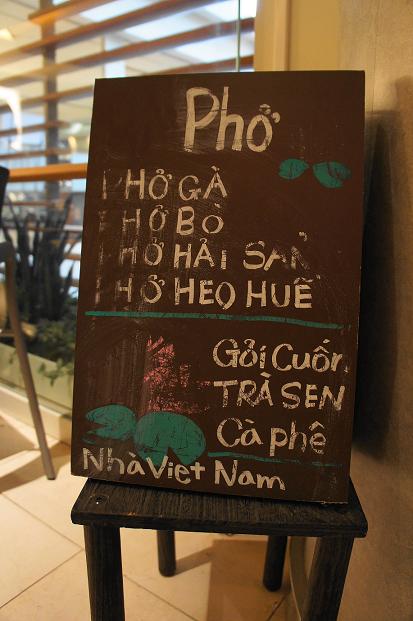 Phở
PHỞ GÀ
PHỞ BÒ
PHỞ HẢI SẢN
PHỞ HEO HUẾ
Gỏi Cuốn
TRÀ SEN
Cà phê
Nhà Việt Nam